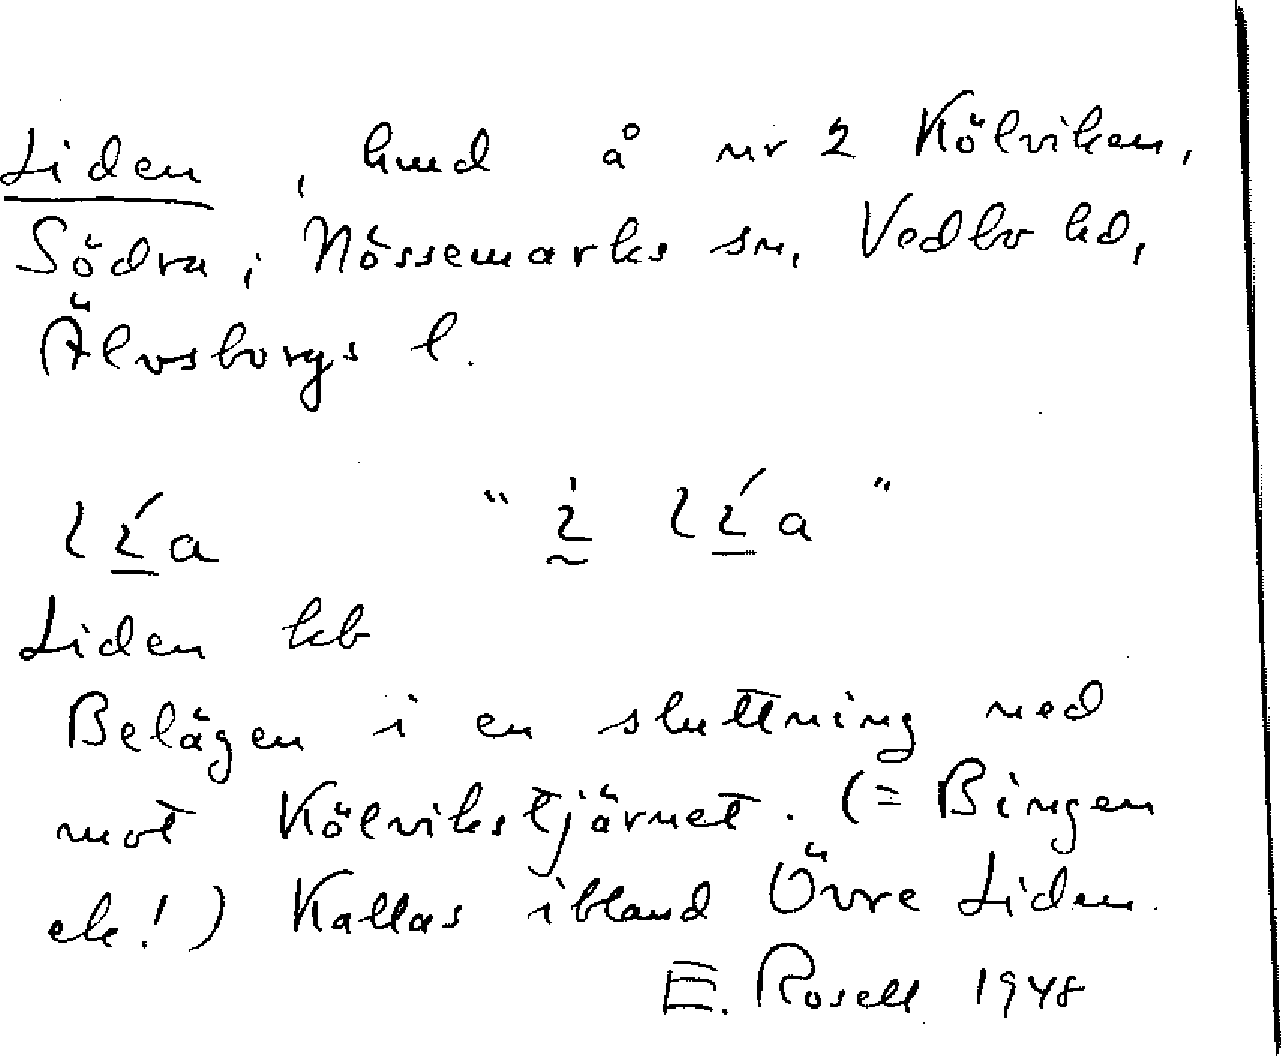 Liden, hmd å nr 2 Kölviken,
Södra, Nössemarks sn, Vedbo hd,
Älvsborgs l.
lí̱a "i lí̱a"
Liden kb
Belägen i en sluttning ned
mot Kölvikstjärnet. (= Bingen
ek!) Kallas ibland Övre Liden.
E. Rosell 1948